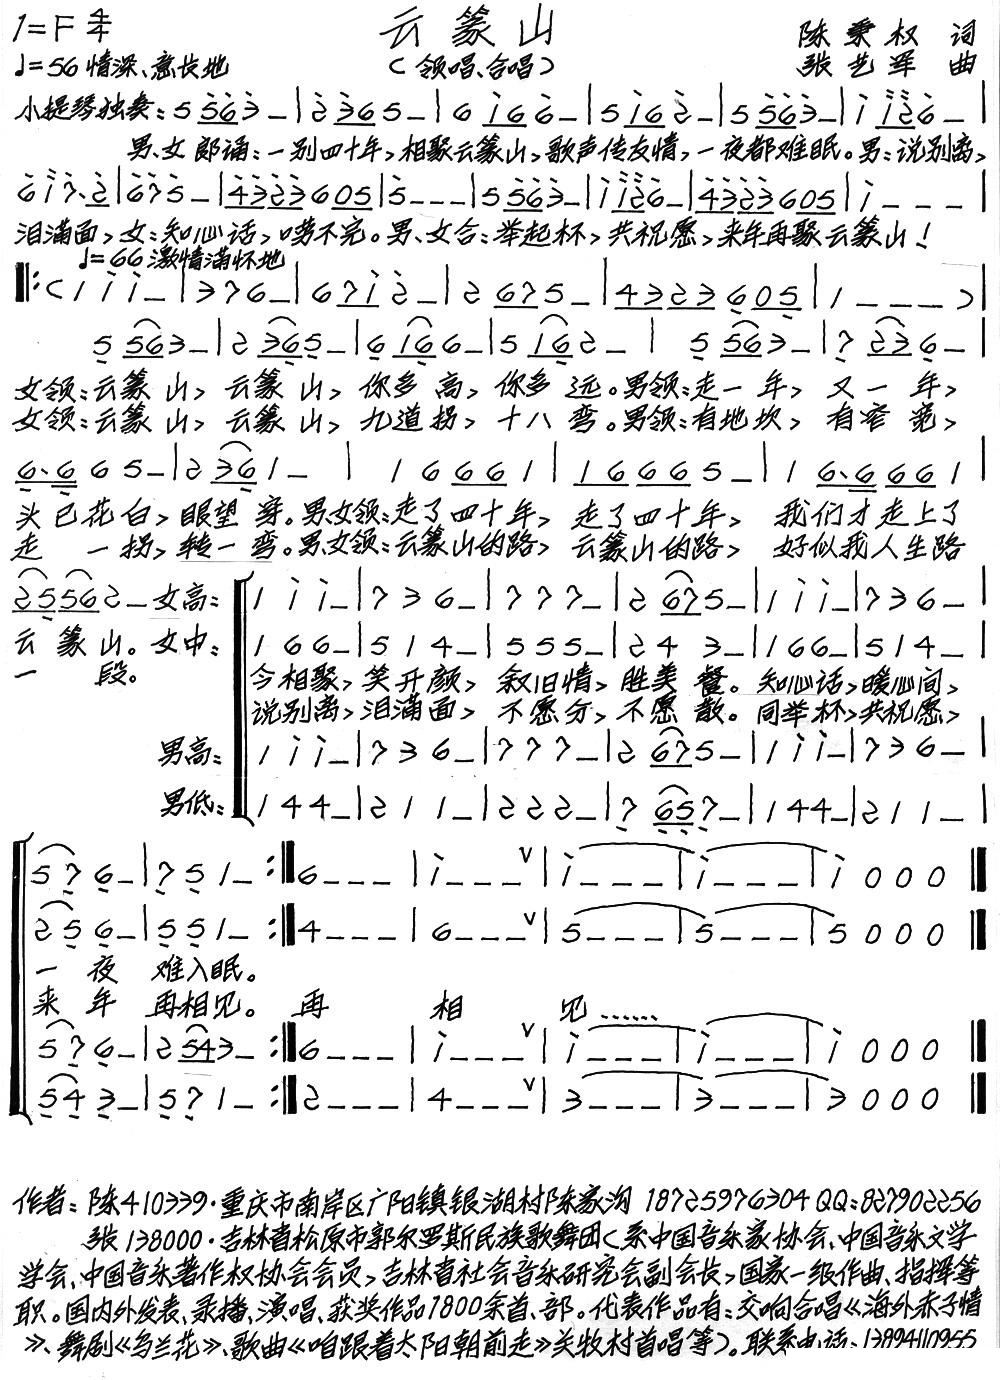 1=F 4/4 云篆山 陈秉权 词
♩=56 情深、意长地 (领唱、合唱) 张艺军 曲
小提琴独奏: 5 563 – | 2 365 – | 6 166 – | 5 162 – | 5 563 – | 1 1126 – |
男、女郎诵:一别四十年,相聚云篆山,歌声传友情,一夜都难眠。男:说别离,
6 1 7· 2 | 675 – | 432323605 | 5 – – – | 5 563 – | 1126 – | 432323605 | 1 – – – |
泪满面,女:知心话,唠不完。男、女合:举起杯,共祝愿,来年再聚云篆山!
♩=66 激情满怀地
‖: ( 1 1 1 – | 3 7 6 – | 6 7 1 2 – | 2 675 – | 4323 605 | 1 – – – ) |
5 563 – | 2 365 – | 6 166 – | 5 162 – | 5 563 – | 7 236 – |
女领:云篆山, 云篆山, 你多高, 你多远。男领:走一年, 又一年,
女领:云篆山, 云篆山, 九道拐, 十八弯。男领:有地坎, 有窄宽,
6·6 6 5 – | 2 361 – | 1 6 6 6 1 | 1 6 6 6 5 – | 1 6·6 6 6 1 |
头已花白,眼望穿。男、女领:走了四十年, 走了四十年, 我们才走上了
走一拐,转一弯。男、女领:云篆山的路, 云篆山的路, 好似我人生路
25562 – 女高: 1 1 1 – | 7 3 6 – | 7 7 7 – | 2 675 – | 1 1 1 – | 7 3 6 – |
云篆山。女中: 1 6 6 – | 5 1 4 – | 5 5 5 – | 2 4 3 – | 1 6 6 – | 5 1 4 – |
一段。 今相聚,笑开颜, 叙旧情,胜美餐。知心话,暖心间,
说别离,泪满面, 不愿分,不愿散。同举杯,共祝愿,
男高: 1 1 1 – | 7 3 6 – | 7 7 7 – | 2 675 – | 1 1 1 – | 7 3 6 – |
男低: 1 4 4 – | 2 1 1 – | 2 2 2 – | 7 657 – | 1 4 4 – | 2 1 1 – |
5 7 6 – | 7 5 1 – :‖ 6 – – – | 1 – – – ∨ | 1 – – – | 1 – – – | 1 0 0 0 ‖
2 5 6 – | 5 5 1 – :‖ 4 – – – | 6 – – – ∨ | 5 – – – | 5 – – – | 5 0 0 0 ‖
一夜 难入眠。
来年 再相见。 再 相 见……
5 7 6 – | 2 543 – :‖ 6 – – – | 1 – – – ∨ | 1 – – – | 1 – – – | 1 0 0 0 ‖
5 4 3 – | 5 7 1 – :‖ 2 – – – | 4 – – – ∨ | 3 – – – | 3 – – – | 3 0 0 0 ‖
作者:陈410339·重庆市南岸区广阳镇银湖村陈家沟 18725976304 QQ:827902256
张138000·吉林省松原市郭尔罗斯民族歌舞团(系中国音乐家协会、中国音乐文学
学会、中国音乐著作权协会会员,吉林省社会音乐研究会副会长,国家一级作曲、指挥等
职。国内外发表、录播、演唱、获奖作品1800余首、部。代表作品有:交响合唱《海外赤子情
》、舞剧《乌兰花》、歌曲《咱跟着太阳朝前走》关牧村首唱等)。联系电话:13894110955